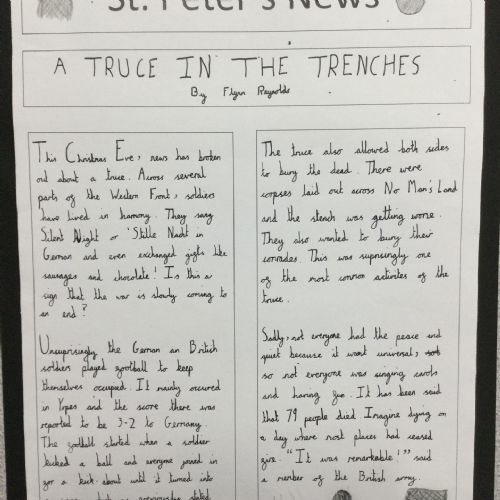 St. Peter's News
A TRUCE IN THE TRENCHES
By Flynn Reynolds
This Christmas Eve, news has broken
out about a truce. Across several
parts of the Western Front, soldiers
have lived in harmony. They sang
Silent Night or 'Stille Nacht in
German and even exchanged gifts like
sausages and chocolate! Is this a
sign that the war is slowly coming to
an end?
Unsuprisingly the German an British
soldiers played football to keep
themselves occupied. It mainly occured
in Ypres and the score there was
reported to be 3-2 to Germany.
The football started when a soldier
kicked a ball and everyone joined in
for a kick about until it turned into
as previously stated
The truce also allowed both sides
to bury the dead. There were
corpses laid out across No Man's Land
and the stench was getting worse.
They also wanted to bury their
comrades. This was suprisingly one
of the most common activites of the
truce.
Sadly, not everyone had the peace and
quiet because it wasnt universal,
so not everyone was singing carols
and having fun. It has been said
that 79 people died. Imagine dying on
a day where most places had ceased
fire. "It was remarkable!" said
a member of the British army.